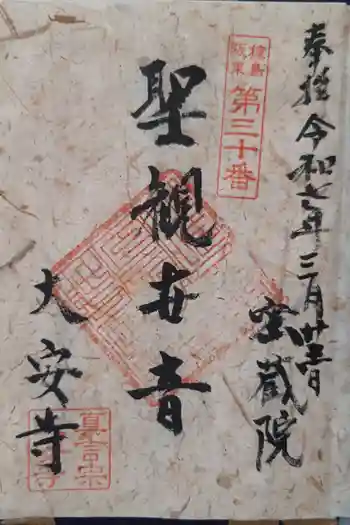 奉拝 令和七年三月廿三日
猿島
阪東
第三十番
聖観世音
宝蔵院
大安寺
眞言宗